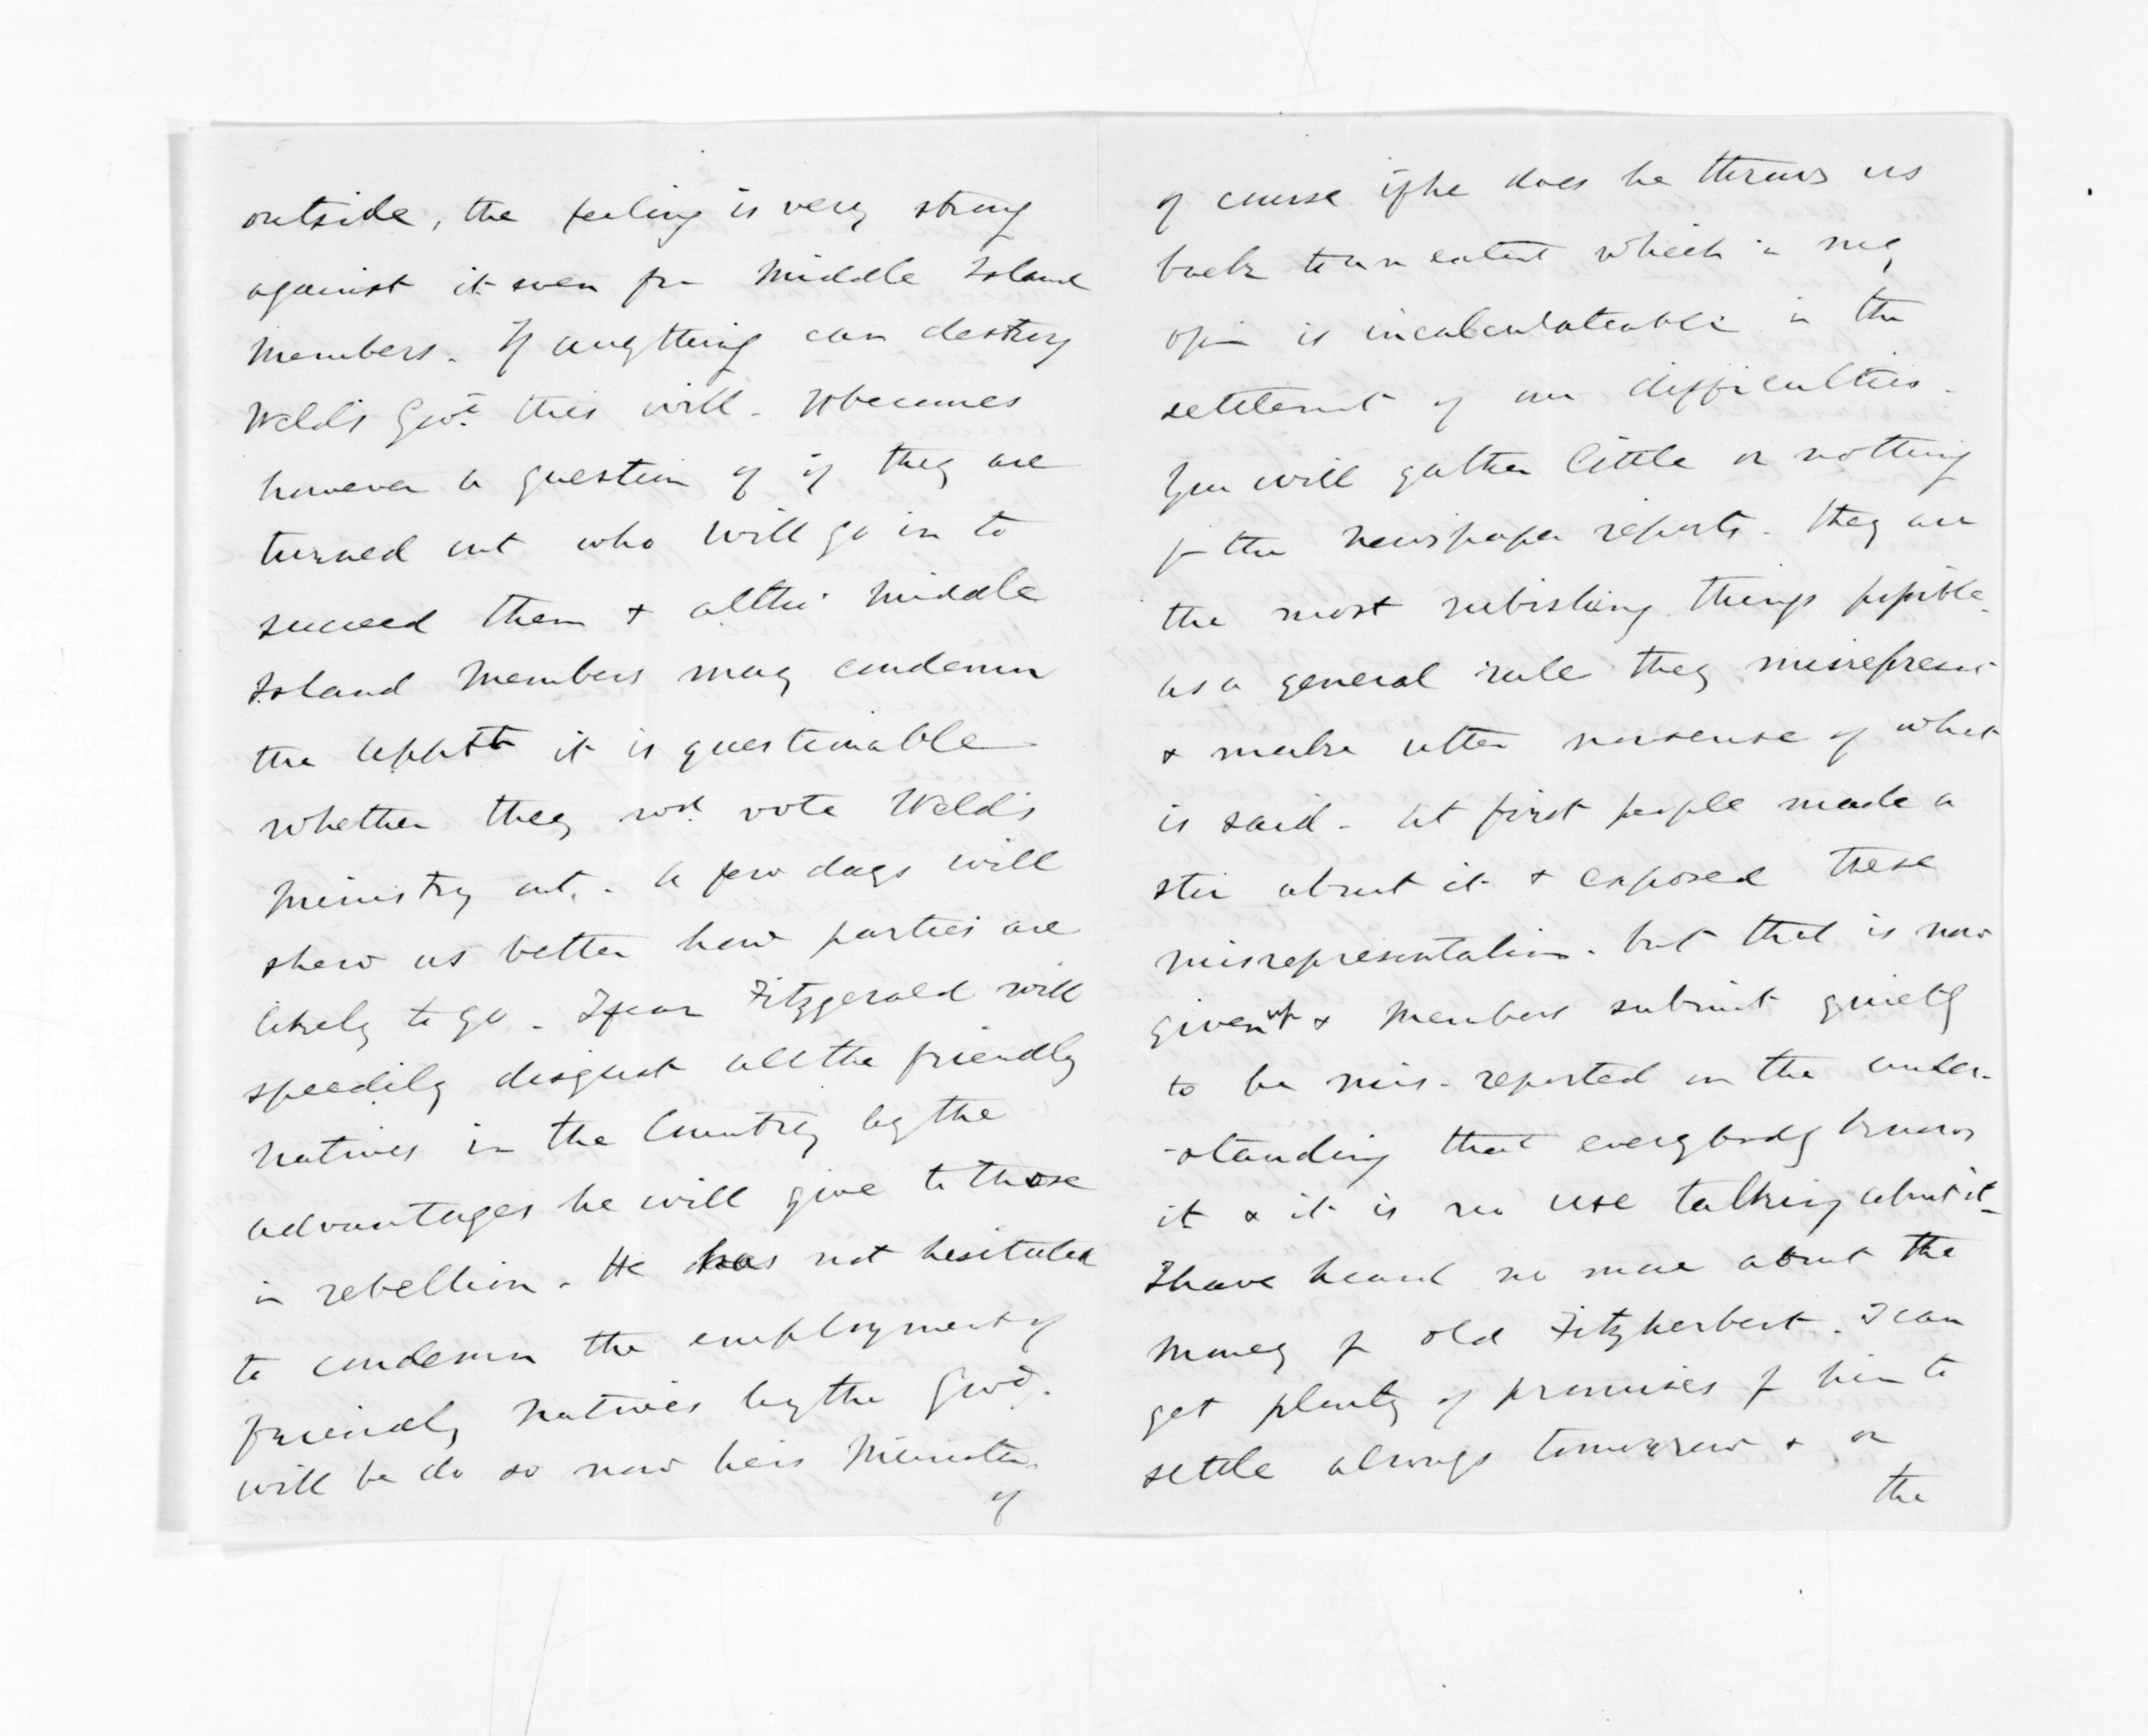 outside, the feeling is very strong
against it even fm Middle Island
Members. If anything can destroy
Weld's Govt. this will. It becomes
however a question of if they are
turned out who will go in to
succeed them & altho' Middle
Island Members may condemn
the appttt it is questionable
whether they wod. vote Weld's
Ministry out. - A few days will
shew us better how parties are
likely to go - I fear Fitzgerald will
speedily disgust all the friendly
Natives in the Country by the
advantages he will give to those
in rebellion. He has not hesitated
to condemn the employment of
friendly Natives by the Govt.
will he do so now he is Minister.
of
of course if he does he throws us
back to an extent which in my
opin is incalculateable in the
settlement of our difficulties.
You will gather little or nothing
fm the Newspaper reports. They are
the most rubishing things possible.
as a general rule they misrepresent
& make utter nonsense of what
is said - At first people made a
stir about it & exposed these
misrepresentations. but that is now
given up & Members submit quietly
to be mis-reported on the under-
-standing that everybody knows
it & it is no use talking about it -
I have heard no more about the
Money f old Fitzherbert. I can
get plenty of promises f him to
settle always tomorrow & on
the